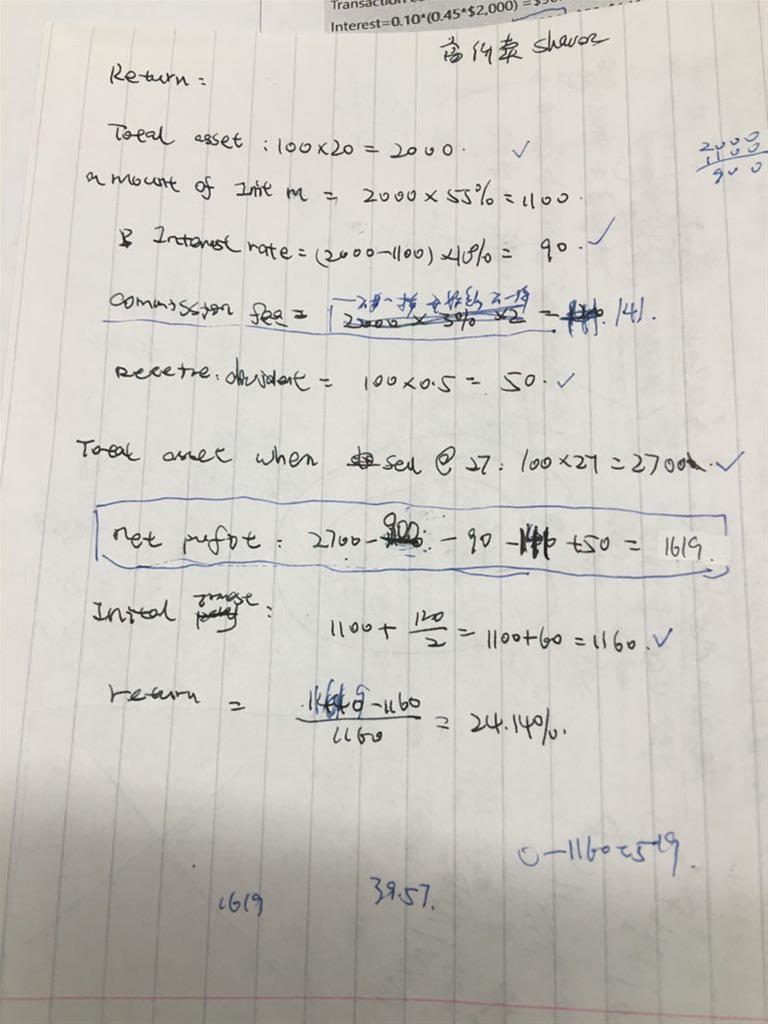 Transaction
Interest=0.10*(0.45*$2,000) =$90
shares
Return:
Total asset : 100×20 = 2000. ✓
2000
1100
900
amount of Init m = 2000 × 55% = 1100.
Interest rate = (2000-1100) ×10% = 90. ✓
commission fee = 2000 × 3% ×2 = 141.
dividend = 100×0.5 = 50. ✓
Total asset when sell @ 27: 100×27 = 2700. ✓
net : 2700-900 - 90 -141 +50 = 1619.
Inital : 1100 + 120/2 = 1100+60 = 1160. ✓
return = -1160/1160 = 24.14%.
0-1160=519.
1619
39.57.